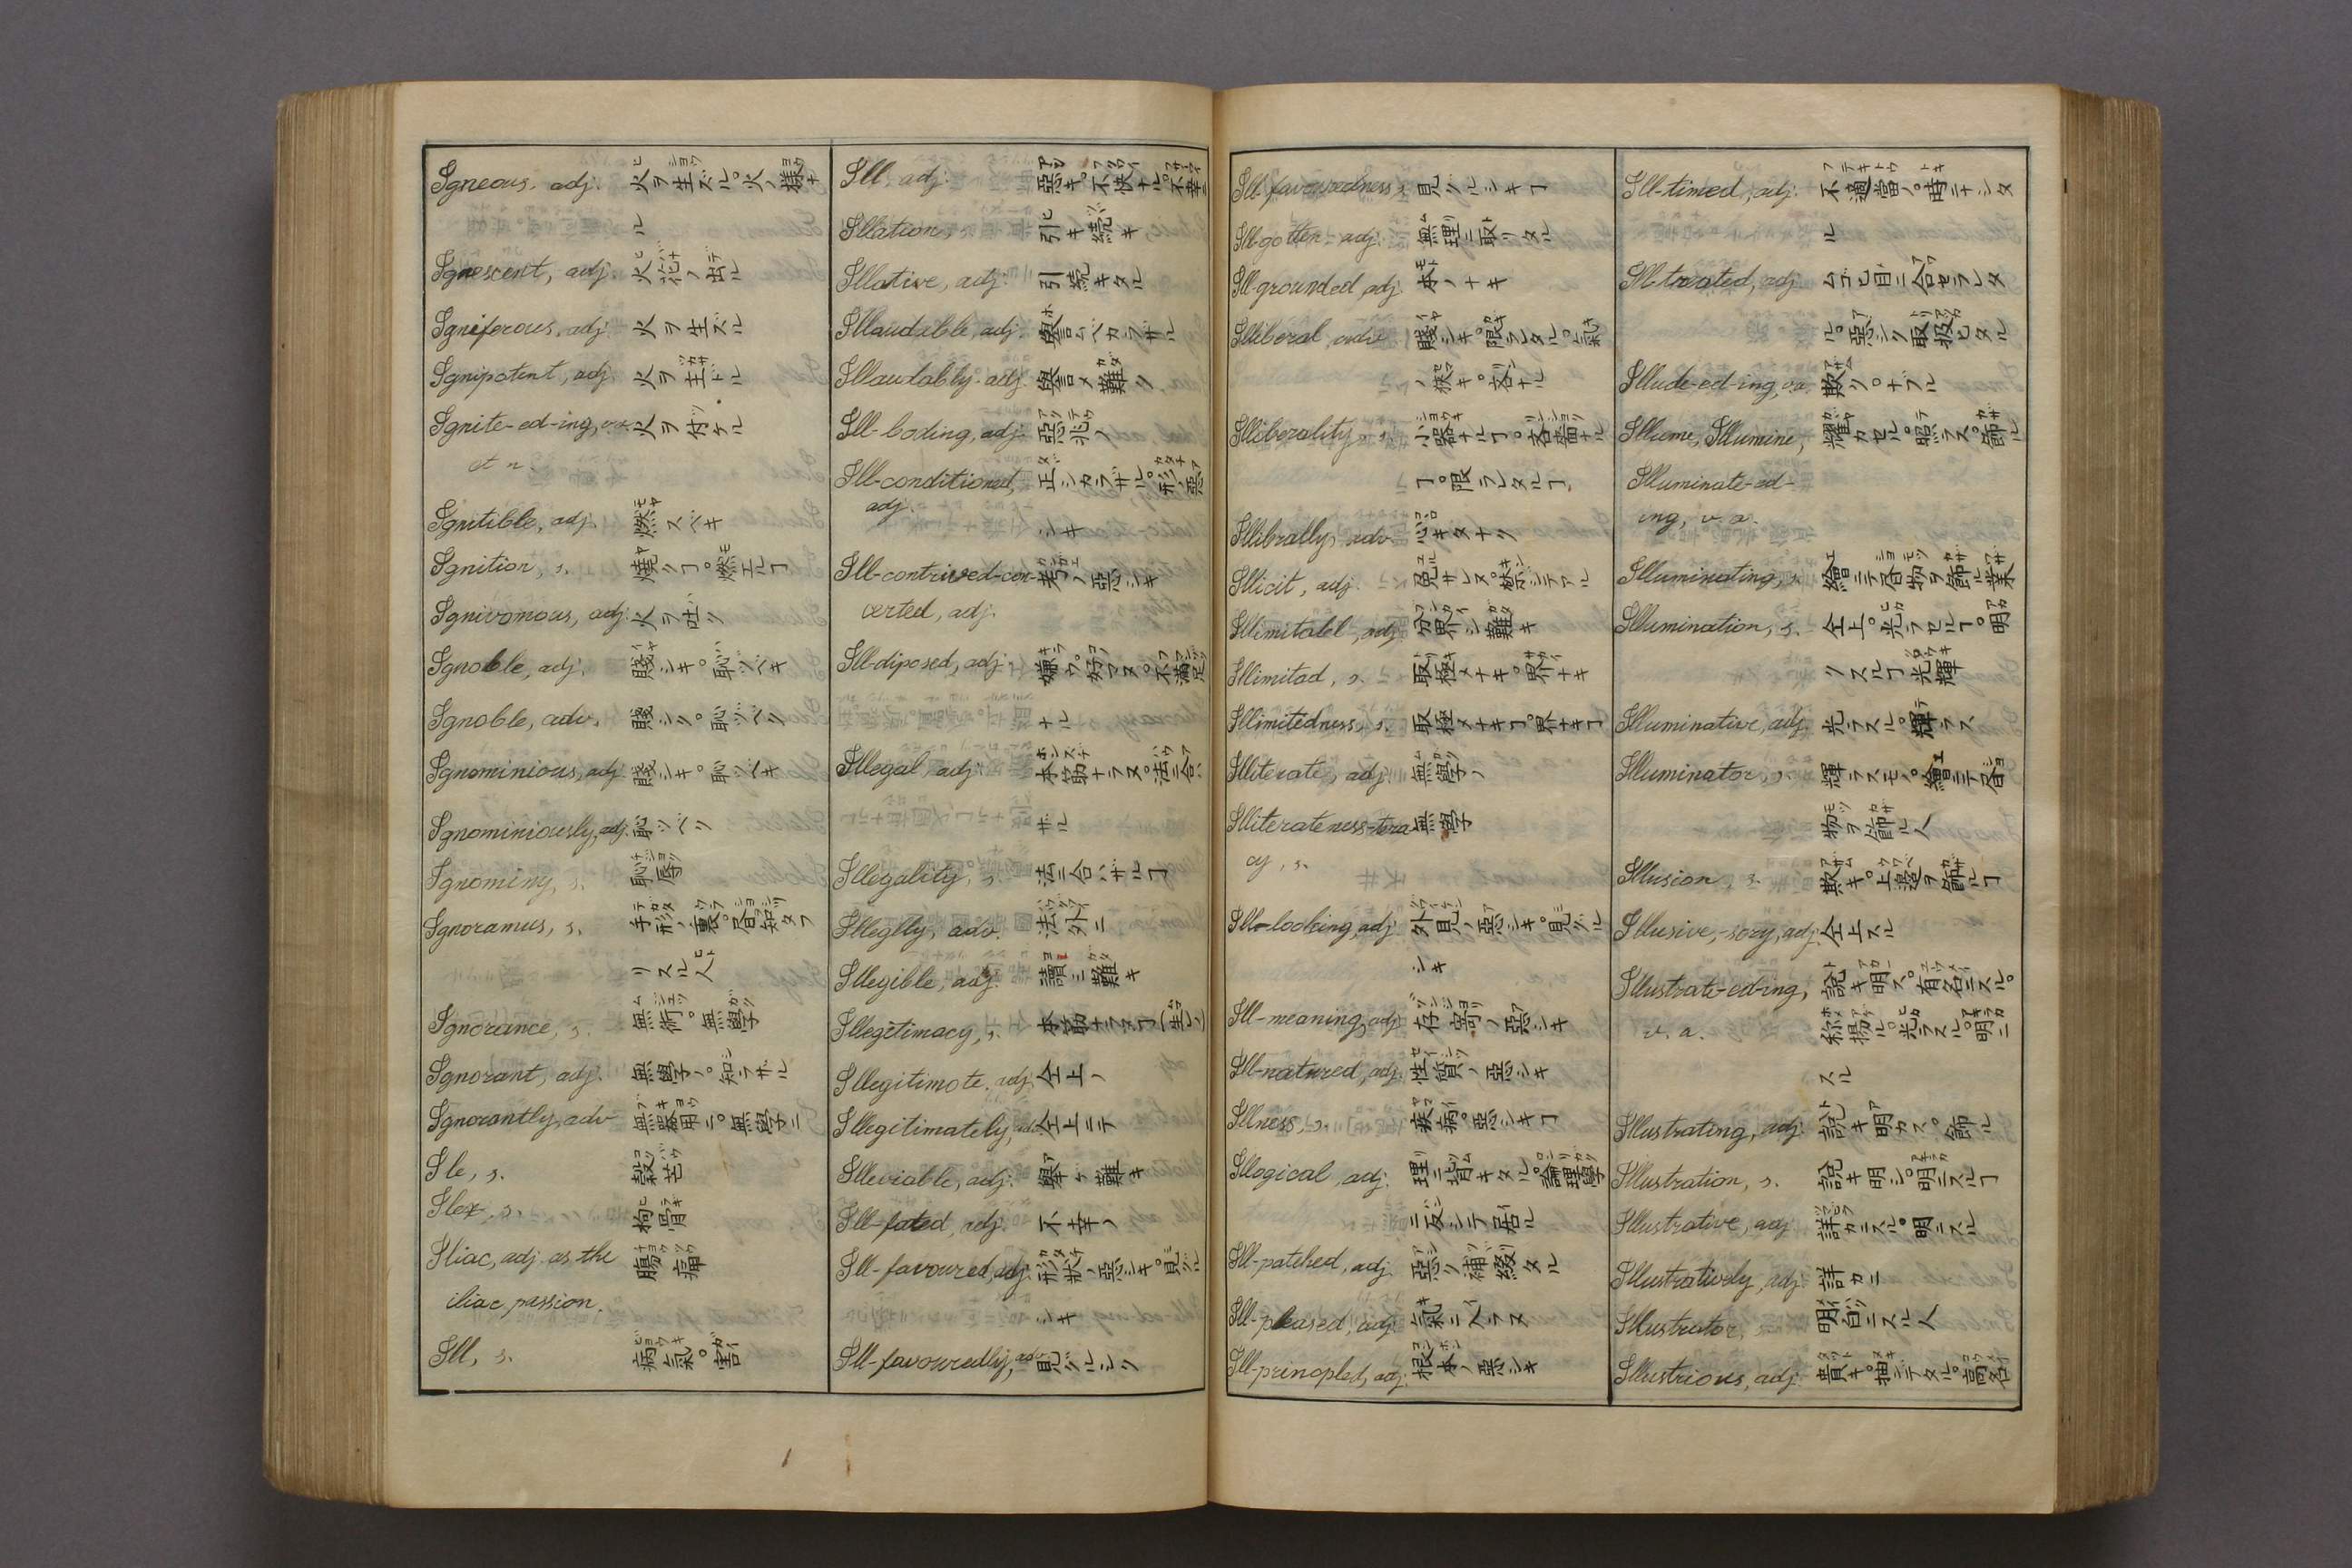 Igneous, adj. 火ヲ生ズル。火ノ様ナ
ル
Ignescent, adj. 火花ノ出ル
Igniferous, adj. 火ヲ生ズル
Ignipotent, adj. 火ヲ主ドル
Ignite-ed-ing, v.a. 火ヲ付ケル
et n.
Ignitible, adj. 燃スベキ
Ignition, s. 燒クヿ。燃エルヿ
Ignivomous, adj. 火ヲ吐ク
Ignoble, adj. 賤シキ。恥ヅベキ
Ignoble, adv. 賤シク。恥ヅベク
Ignominious, adj. 賤シキ。恥ヅベキ
Ignominiously, adj. 恥ヅベク
Ignominy, s. 恥辱
Ignoramus, s. 手形ノ裏。書知タフ
リスル人
Ignorance, s. 無術。無學
Ignorant, adj. 無學ノ。知ラザル
Ignorantly, adv 無器用ニ。無學ニ
Ile, s. 穀芒
Ilex, s. 枸骨
Iliac, adj. as the 腸痛
iliac passion.
Ill, s. 病氣。害
Ill, adj. 惡キ。不快ナル。不幸ニ
Illation, s. 引キ続キ
Illative, adj. 引続キタル
Illaudable, adj. 譽ムベカラザル
Illaudably, adj. 譽メ難ク
Ill-boding, adj. 惡兆ノ
Ill-conditioned, 正シカラザル。形ノ惡
adj. シキ
Ill-contrived-con- 考ノ惡シキ
certed, adj.
Ill-diposed, adj. 嫌ウ。好マヌ。不滿足
ナル
Illegal, adj. 本筋ナラヌ。法ニ合ハ
ザル
Illegality, s. 法ニ合ハザルヿ
Illeglly, adv. 法外ニ
Illegible, adj. 讀ミ難キ
Illegitimacy, s. 本筋ナラヌヿ
Illegitimate, adj. 仝上ノ
Illegitimately, adv. 仝上ニテ
Illeviable, adj. 擧ケ難キ
Ill-fated, adj. 不幸ノ
Ill-favoured, adj. 形狀ノ惡シキ。見グル
シキ
Ill-favouredly, adv. 見グルシク
Ill-favouredness, s. 見グルシキヿ
Ill-gotten, adj. 無理ニ取リタル
Ill-grounded, adj. 本ノナキ
Illiberal, adv. 賤シキ。限ラレタル。氣
ノ狹キ。吝ナル
Illiberality, s. 小器ナルヿ。吝嗇ナル
ヿ。限ラレタルヿ
Illibrally, adv. 心キタナク
Illicit, adj. 免サレヌ。禁シテアル
Illimitabl, adj. 分界シ難キ
Illimitad, s. 取極メナキ。界ナキ
Illimitedness, s. 取極メナキヿ。界ナキヿ
Illiterate, adj. 無學ノ
Illiterateness-tera 無學
cy, s.
Ill-looking, adj. 外見ノ惡シキ。見グル
シキ
Ill-meaning, adj. 存寄ノ惡シキ
Ill-natured, adj. 性質ノ惡シキ
Illness, s. 疾病。惡シキヿ
Illogical, adj. 理ニ背キタル。論理學
ニ反シテ居ル
Ill-patched, adj. 惡ク補綴タル
Ill-pleased, adj. 氣ニ入ラヌ
Ill-principled, adj. 根本ノ惡シキ
Ill-timed, adj. 不適當ノ。時ニナシタ
ル
Ill-treated, adj. ムゴヒ目ニ合セラレタ
ル。惡シク取扱ヒタル
Illude-ed-ing, v.a. 欺ク。ナブル
Illume, Illumine, 耀カセル。照ラス。飾ル
Illuminate-ed-
ing, v. a.
Illuminating, s. 繪ニテ書物ヲ飾ル業
Illumination, s. 仝上。光ラセルヿ。明カ
リスルヿ光輝
Illuminative, adj. 光ラスル。輝ラス
Illuminator, s. 輝ラスモノ。繪ニテ書
物ヲ飾ル人
Illusion, s. 欺キ。上邊ヲ飾ルヿ
Illusive,-sory, adj. 仝上スル
Illustrate-ed-ing, 說キ明ス。有名ニスル。
v. a. 称揚ル。光ラスル。明ニ
スル
Illustrating, adj. 說キ明カス。飾ル
Illustration, s. 說キ明シ。明ニスルヿ
Illustrative, adj. 詳カニスル。明ニスル
Illustratively, adj. 詳カニ
Illustrator, s. 明白ニスル人
Illustrious, adj. 貴キ。抽ンデタル。高名